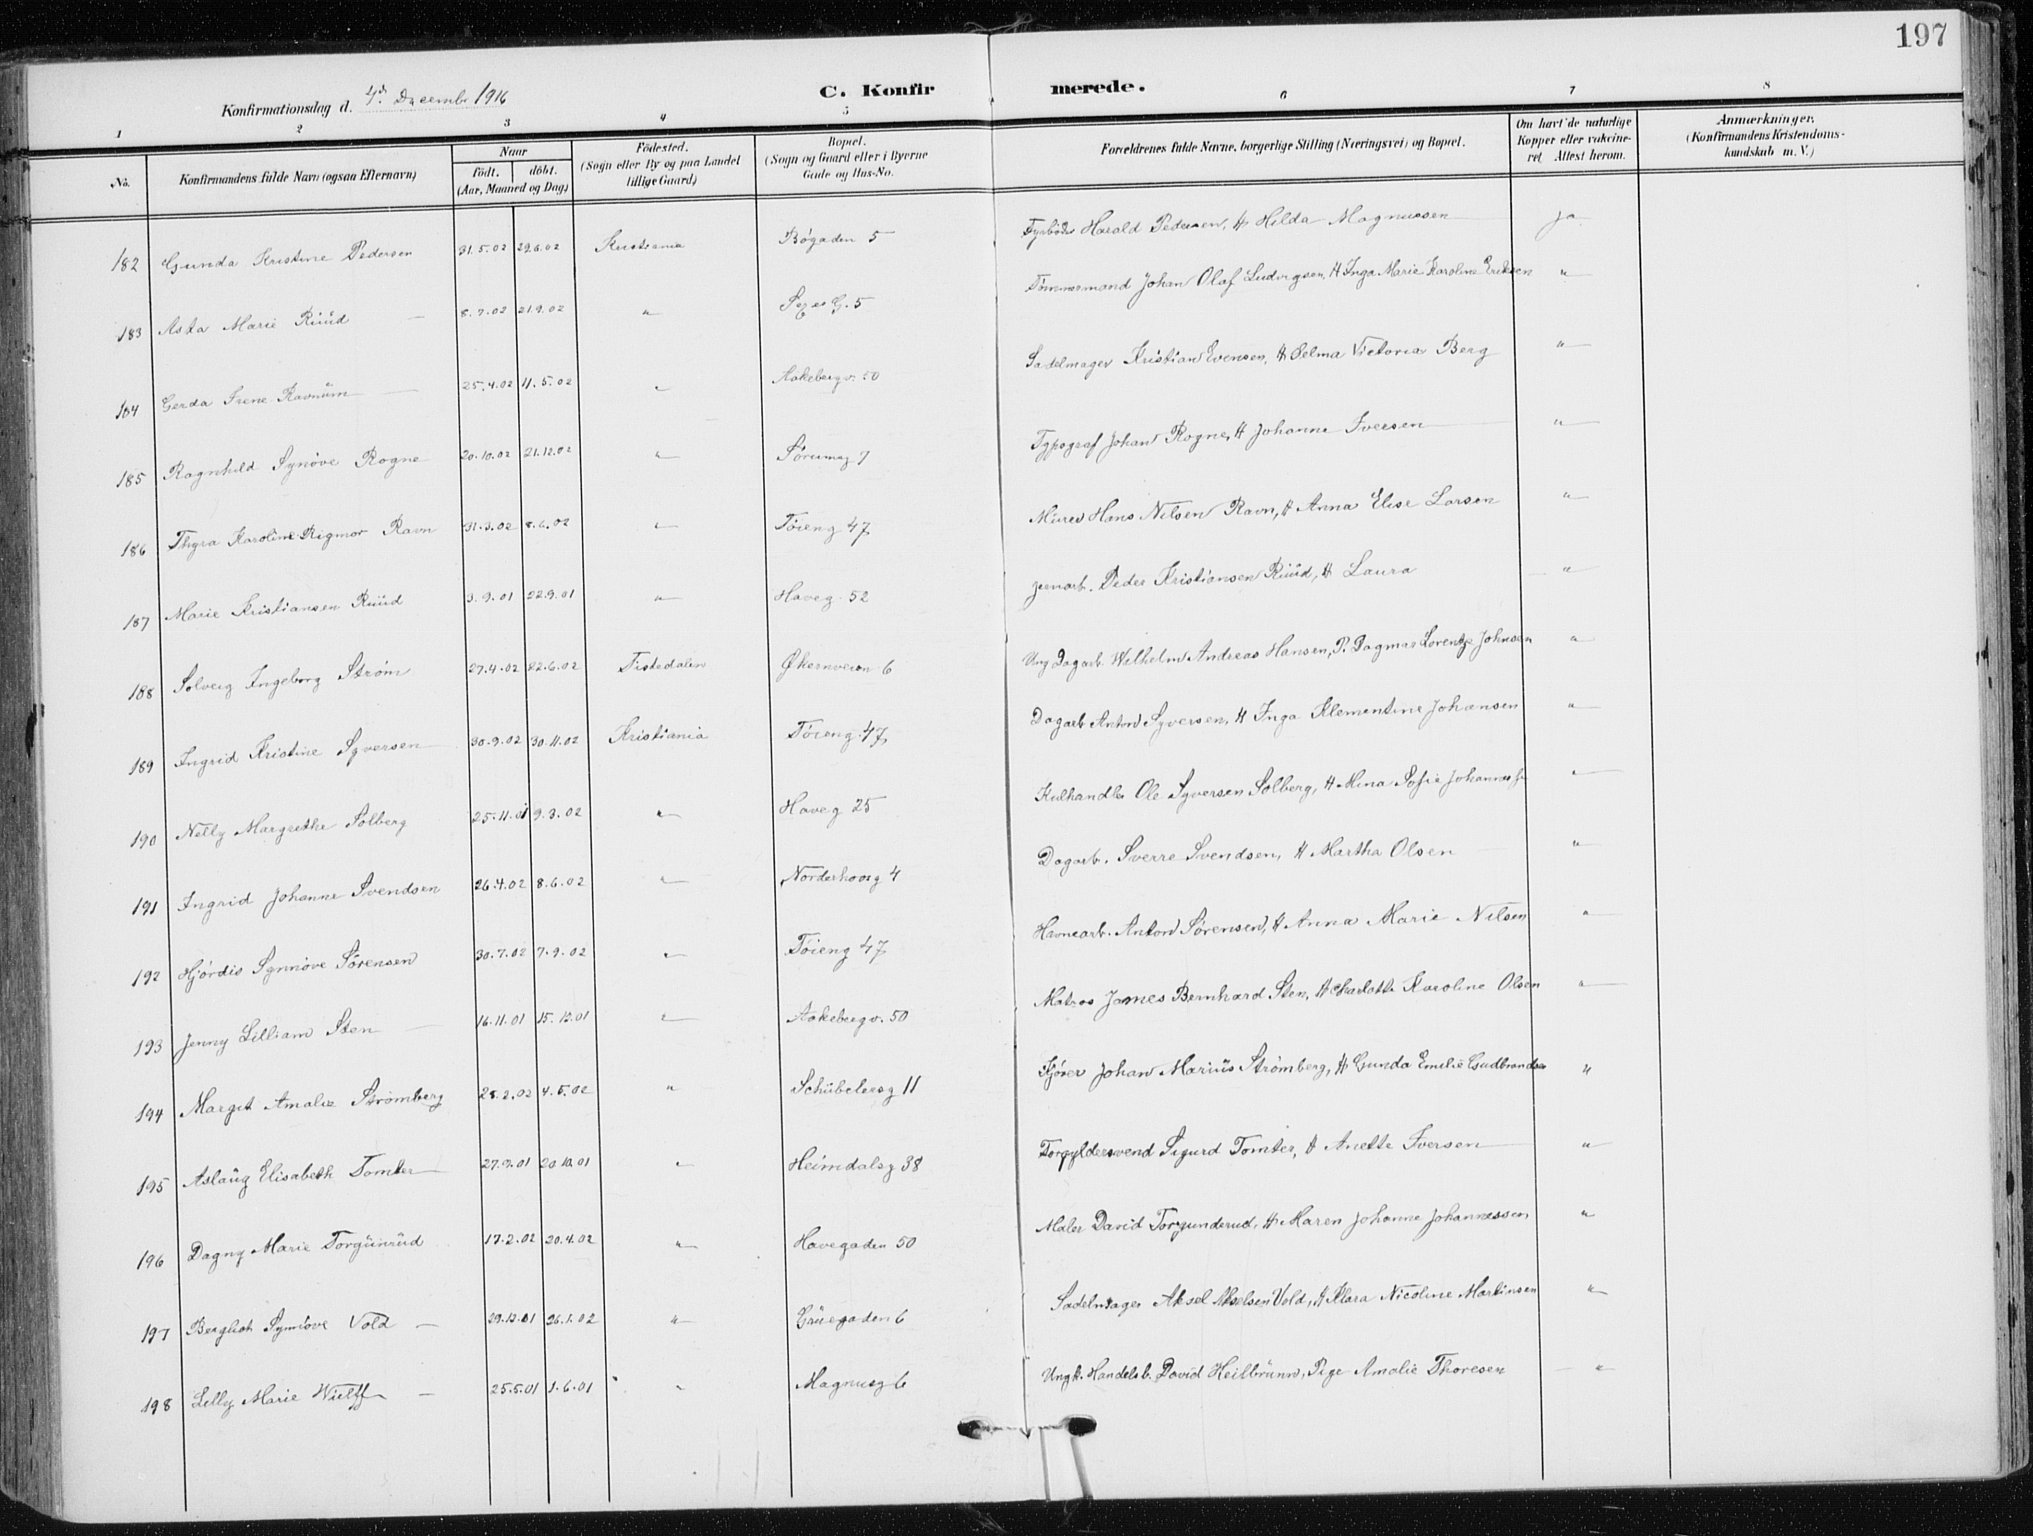 197
Konfirmationsdag d. 4de December 1916
C. Konfirmerede.
1 2 3 4 5 6 7 8
No. Konfirmandens fulde Navn (ogsaa Efternavn) Naar födt. döbt. (Aar, Maaned og Dag) Födested. (Sogn eller By og paa Landet tillige Gaard) Bopæl. (Sogn og Gaard eller i Byerne Gade og Hus-No. Forældrenes fulde Navne, borgerlige Stilling (Næringsvei) og Bopæl. Om havt de naturlige Kopper eller vakcineret Attest herom. Anmærkninger. (Konfirmandens Kristendomskundskab m. V.)
182 Gunda Kristine Pedersen 31.5.02 29.6.02 Kristiania Bøgaden 5 Fyrbøder Harald Pedersen, H Hilda Magnussen ja
183 Asta Marie Ruud 8.7.02 21.9.02 " G. 5 Tømmermand Johan Olaf Ludvigsen, H Inga Marie Karoline Eriksen "
184 Gerda Irene Ravnum 25.4.02 11.5.02 " Aakebergv. 50 Sadelmager Kristian Evensen, H Selma Victoria Berg "
185 Ragnhild Synöve Rogne 20.10.02 21.12.02 " Sörumsg 7 Typograf Johan Rogne, H Johanne Iversen "
186 Thyra Karoline Rigmor Ravn 31.3.02 8.6.02 " Töieng 47 Murer Hans Nilsen Ravn, H Anna Elise Larsen "
187 Marie Kristiansen Ruud 3.9.01 22.9.01 " Haveg. 52 Jernarb. Peder Kristiansen Ruud, H Laura "
188 Solveig Ingeborg Strøm 27.4.02 22.6.02 Tistedalen Økernveien 6 Ung Dagarb. Wilhelm Andreas Hansen, P. Dagmar Lorentze Johnsen "
189 Ingrid Kristine Syversen 30.9.02 30.11.02 Kristiania Töieng. 47 Dagarb Anton Syversen, H Inga Klementine Johansen "
190 Nelly Margrethe Solberg 25.11.01 9.3.02 " Haveg 25 Kulhandler Ole Syversen Solberg, H Mina Sofie "
191 Ingrid Johanne Svendsen 26.4.02 8.6.02 " Norderhovsg 4 Dagarb. Sverre Svendsen, H Martha Olsen "
192 Hjördis Synnöve Sörensen 30.7.02 7.9.02 " Töieng 47 Havnearb. Anton Sörensen, H Anna Marie Nilsen "
193 Jenny Lilliam Sten 16.11.01 15.12.01 " Aakebergv. 50 Matros James Bernhard Sten, H Charlotte Karoline Olsen "
194 Margit Amalie Strömberg 28.2.02 4.5.02 " Schübelersg 11 Kjører Johan Marius Strømberg, H Gunda Emilie Gudbrandsen "
195 Aslaug Elisabeth Tomter 27.9.01 20.10.01 " Heimdalsg 38 Forgyldersvend Sigurd Tomter, H Anette Iversen "
196 Dagny Marie Torgunrud 17.2.02 20.4.02 " Havegaden 50 Maler David Torgunderud, H Maren Johanne Johannessen "
197 Bergliot Synnöve Vold 29.12.01 26.1.02 " Grüegaden 6 Sadelmager Aksel Akselsen Vold, H Klara Nicoline Martinsen "
198 Lilly Marie 25.5.01 1.6.01 " Magnusg 6 Ungk. Handelsb. David Heilbrunn, Pige Amalie Thoresen "